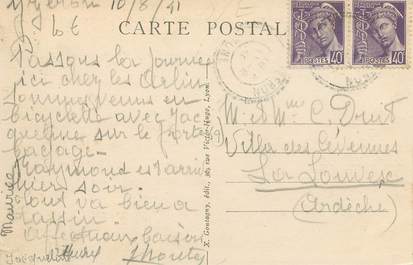 Yzeron 10/8/41
CARTE POSTALE
Passons la journée
ici chez les
Sommes venus en
bicyclette avec Jac
queline sur le porte
bagage.
Raymond est arrivé
hier soir.
Tout va bien à
Tassin.
Affectueux baisers
Maurice
Jacqueline
X. Goutagny, édit., 86, rue Victor-Hugo, Lyon.
POSTES 40
POSTES 40
M. et Mme C. Druit
Villa des Cévennes
La Louvesc
(Ardèche)